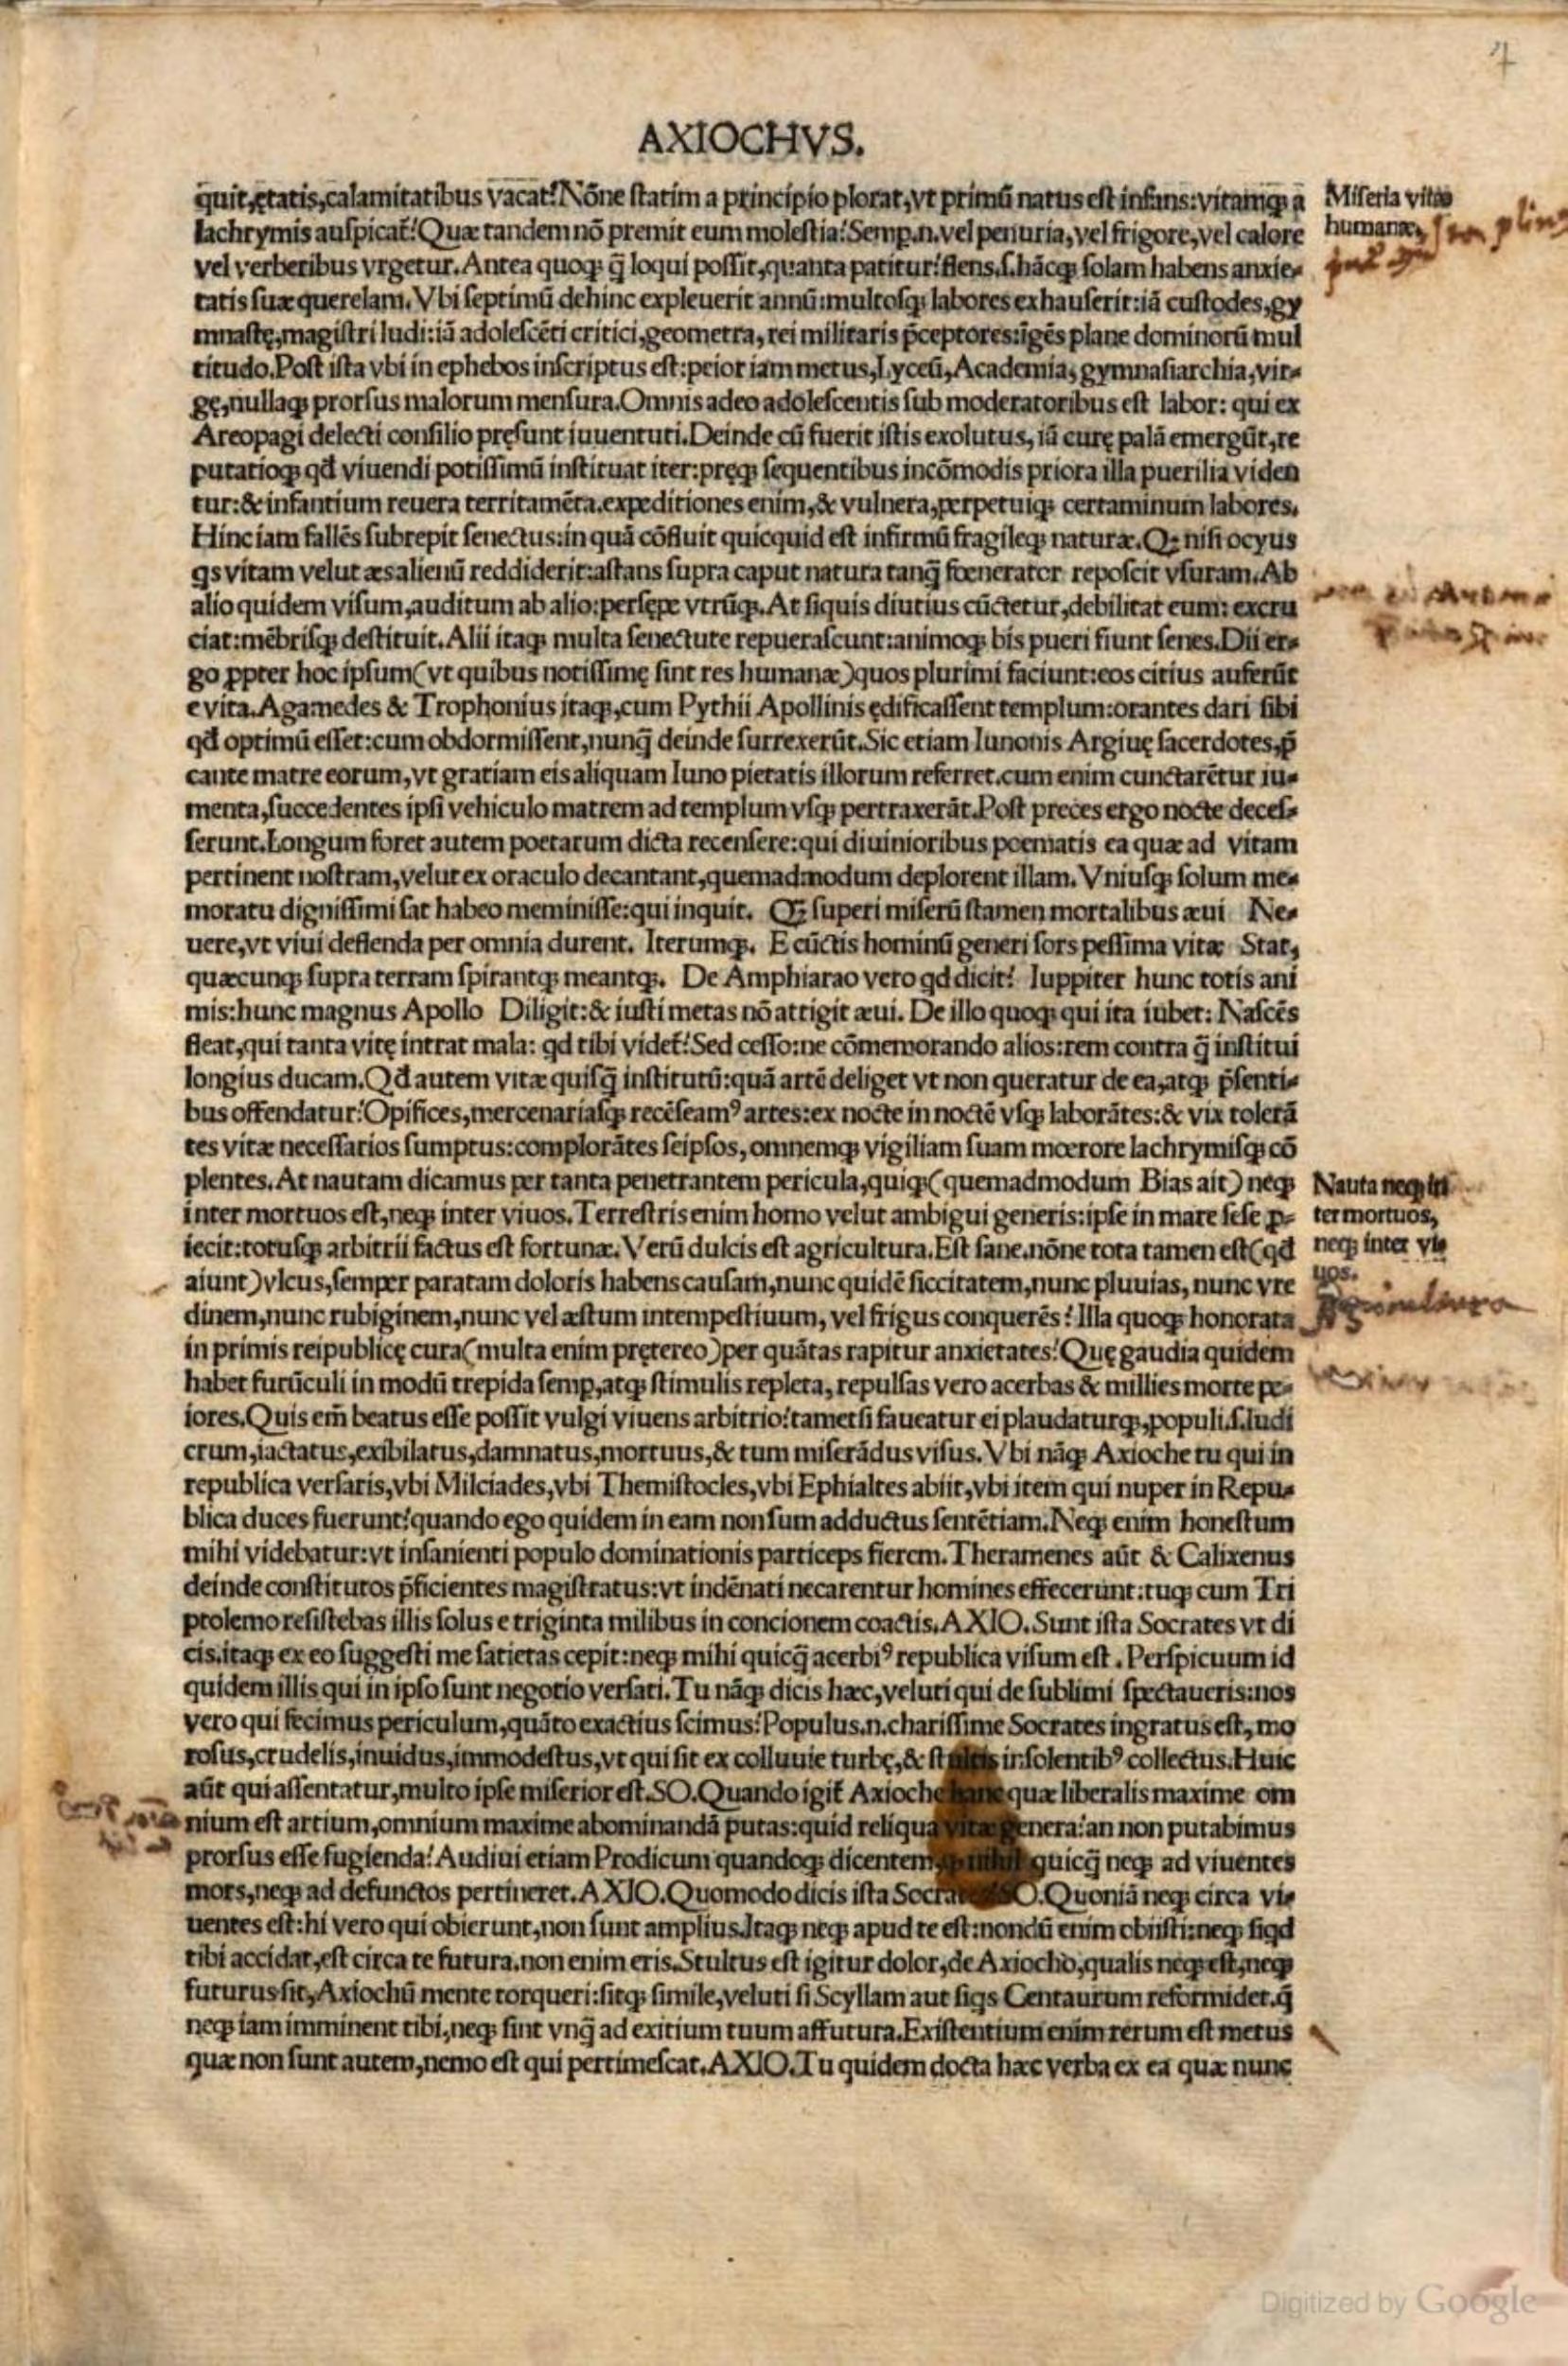 AXIOCHVS.
quit,ętatis,calamitatibus vacat?Nōne statim a principio plorat,vt primū natus est infans:vitamq; a
lachrymis auspicat̃?Quæ tandem nō premit eum molestia?Semp̱.n.vel penuria,vel frigore,vel calore
vel verberibus vrgetur.Antea quoq; q̃ loqui possit,quanta patitur?flens.s.hācq; solam habens anxie-
tatis suæ querelam.Vbi septimū dehinc expleuerit annū:multosq; labores exhauserit:iā custodes,gy
mnastę,magistri ludi:iā adolescēti critici,geometra,rei militaris p̄ceptores:īgēs plane dominorū mul
titudo.Post ista vbi in ephebos inscriptus est:peior iam metus,Lyceū,Academia,gymnasiarchia,vir-
gę,nullaq; prorsus malorum mensura.Omnis adeo adolescentis sub moderatoribus est labor: qui ex
Areopagi delecti consilio pręsunt iuuentuti.Deinde cū fuerit istis exolutus, iā curę palā emergūt,re
putatioq; qd̃ viuendi potissimū instituat iter:pręq; sequentibus incōmodis priora illa puerilia viden
tur:& infantium reuera territamēta.expeditiones enim,& vulnera,perpetuiq; certaminum labores.
Hinc iam fallēs subrepit senectus:in quā cōfluit quicquid est infirmū fragileq; naturæ.Q; nisi ocyus
qs vitam velut æs alienū reddiderit:astans supra caput natura tanq̃ fœnerator reposcit vsuram.Ab
alio quidem visum,auditum ab alio:persępe vtrūq;.At siquis diutius cūctetur,debilitat eum: excru
ciat:mēbrisq; destituit.Alii itaq; multa senectute repuerascunt:animoq; bis pueri fiunt senes.Dii er-
go p̱pter hoc ipsum(vt quibus notissimę sint res humanæ)quos plurimi faciunt:eos citius auferūt
e vita.Agamedes & Trophonius itaq;,cum Pythii Apollinis ędificassent templum:orantes dari sibi
qd̃ optimū esset:cum obdormissent,nunq̃ deinde surrexerūt.Sic etiam Iunonis Argiuę sacerdotes,p̄
cante matre eorum,vt gratiam eis aliquam Iuno pietatis illorum referret.cum enim cunctarētur iu-
menta,succedentes ipsi vehiculo matrem ad templum vsq; pertraxerāt.Post preces ergo nocte deces-
serunt.Longum foret autem poetarum dicta recensere:qui diuinioribus poematis ea quæ ad vitam
pertinent nostram,velut ex oraculo decantant,quemadmodum deplorent illam. Vniusq; solum me-
moratu dignissimi sat habeo meminisse:qui inquit. Q; superi miserū stamen mortalibus æui Ne-
uere,vt viui deflenda per omnia durent. Iterumq;. E cūctis hominū generi sors pessima vitæ Stat,
quæcunq; supra terram spirantq; meantq;. De Amphiarao vero qd dicit? Iuppiter hunc totis ani
mis:hunc magnus Apollo Diligit:& iusti metas nō attigit æui. De illo quoq; qui ita iubet: Nascēs
fleat,qui tanta vitę intrat mala: qd tibi videt̃?Sed cesso:ne cōmemorando alios:rem contra q̃ institui
longius ducam.Qd̃ autem vitæ quisq̃ institutū:quā artē deliget vt non queratur de ea,atq; p̄senti-
bus offendatur?Opifices,mercenariasq; recēseamꝰ artes:ex nocte in noctē vsq; laborātes:& vix tolerā
tes vitæ necessarios sumptus:complorātes seipsos, omnemq; vigiliam suam mœrore lachrymisq; cō
plentes.At nautam dicamus per tanta penetrantem pericula,quiq;(quemadmodum Bias ait) neq;
inter mortuos est,neq; inter viuos.Terrestris enim homo velut ambigui generis:ipse in mare sese p̱-
iecit:totusq; arbitrii factus est fortunæ.Verū dulcis est agricultura.Est sane.nōne tota tamen est(qd̃
aiunt)vlcus,semper paratam doloris habens causam,nunc quidē siccitatem,nunc pluuias, nunc vre
dinem,nunc rubiginem,nunc vel æstum intempestiuum, vel frigus conquerēs? Illa quoq; honorata
in primis reipublicę cura(multa enim prętereo)per quātas rapitur anxietates?Quę gaudia quidem
habet furūculi in modū trepida semp̱,atq; stimulis repleta, repulsas vero acerbas & millies morte pe-
iores.Quis em̃ beatus esse possit vulgi viuens arbitrio?tametsi faueatur ei plaudaturq;,populi.s.ludi
crum,iactatus,exibilatus,damnatus,mortuus,& tum miserādus visus. Vbi nāq; Axioche tu qui in
republica versaris,vbi Milciades,vbi Themistocles,vbi Ephialtes abiit,vbi item qui nuper in Repu-
blica duces fuerunt?quando ego quidem in eam non sum adductus sentētiam.Neq; enim honestum
mihi videbatur:vt insanienti populo dominationis particeps fierem.Theramenes aūt & Calixenus
deinde constitutos p̄ficientes magistratus:vt indēnati necarentur homines effecerunt:tuq; cum Tri
ptolemo resistebas illis solus e triginta milibus in concionem coactis.AXIO.Sunt ista Socrates vt di
cis.itaq; ex eo suggesti me satietas cepit:neq; mihi quicq̃ acerbiꝰ republica visum est. Perspicuum id
quidem illis qui in ipso sunt negotio versati.Tu nāq; dicis hæc,veluti qui de sublimi spectaueris:nos
vero qui fecimus periculum,quāto exactius scimus?Populus.n.charissime Socrates ingratus est, mo
rosus,crudelis,inuidus,immodestus,vt qui sit ex colluuie turbę,& stultis insolentibꝰ collectus.Huic
aūt qui assentatur,multo ipse miserior est.SO.Quando igit̃ Axioche hanc quæ liberalis maxime om
nium est artium,omnium maxime abominandā putas:quid reliqua vitæ genera?an non putabimus
prorsus esse fugienda?Audiui etiam Prodicum quandoq; dicentem, nihil quicq̃ neq; ad viuentes
mors,neq; ad defunctos pertineret.AXIO.Quomodo dicis ista Socrates SO.Quoniā neq; circa vi-
uentes est:hi vero qui obierunt,non sunt amplius.Itaq; neq; apud te est:nondū enim obiisti:neq; siqd
tibi accidat,est circa te futura.non enim eris.Stultus est igitur dolor,de Axiocho,qualis neq; est,neq;
futurus sit,Axiochū mente torqueri:sitq; simile,veluti si Scyllam aut siqs Centaurum reformidet.q̃
neq; iam imminent tibi,neq; sint vnq̃ ad exitium tuum affutura.Existentium enim rerum est metus
quæ non sunt autem,nemo est qui pertimescat.AXIO.Tu quidem docta hæc verba ex ea quæ nunc
Miseria vitæ
humanæ,
Nauta neq; in
ter mortuos,
neq; inter vi-
uos.
Agricultura
Digitized by Google